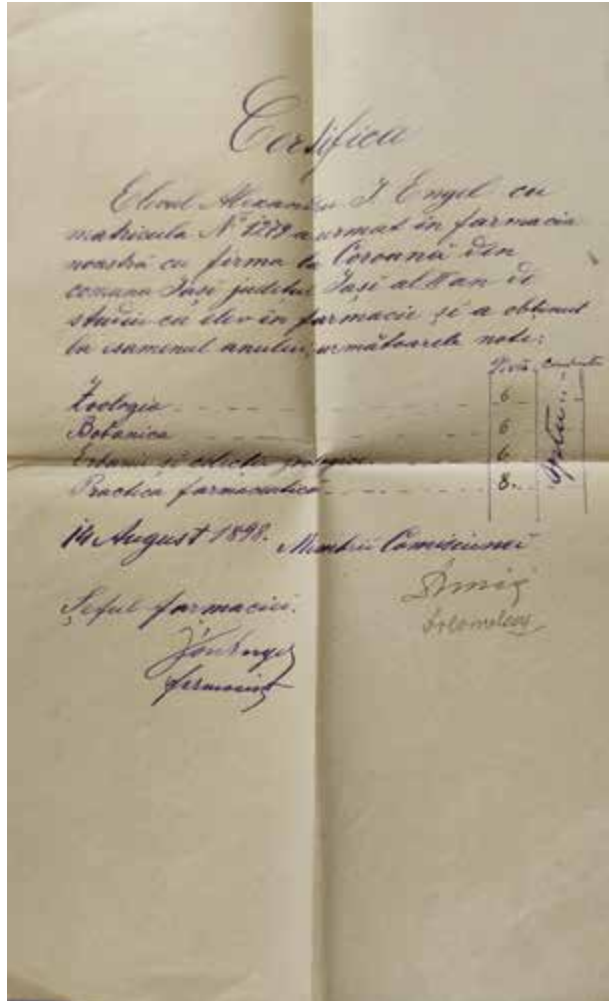 Certifica
Elevul Alexandru I. Engel cu
matricula Nº 1279 a urmat in farmacia
noastră cu firma la Coroană din
comuna Iași județul Iași al II an de
studiu ca elev in farmacie și a obținut
la esamenul anului, următoarele note:
Zoologia 6
Botanica 6
Erbarii și colecții 6
Practica farmaceutică 8.
14 August 1898. Membrii Comisiunei
Șeful farmaciei.
farmacist